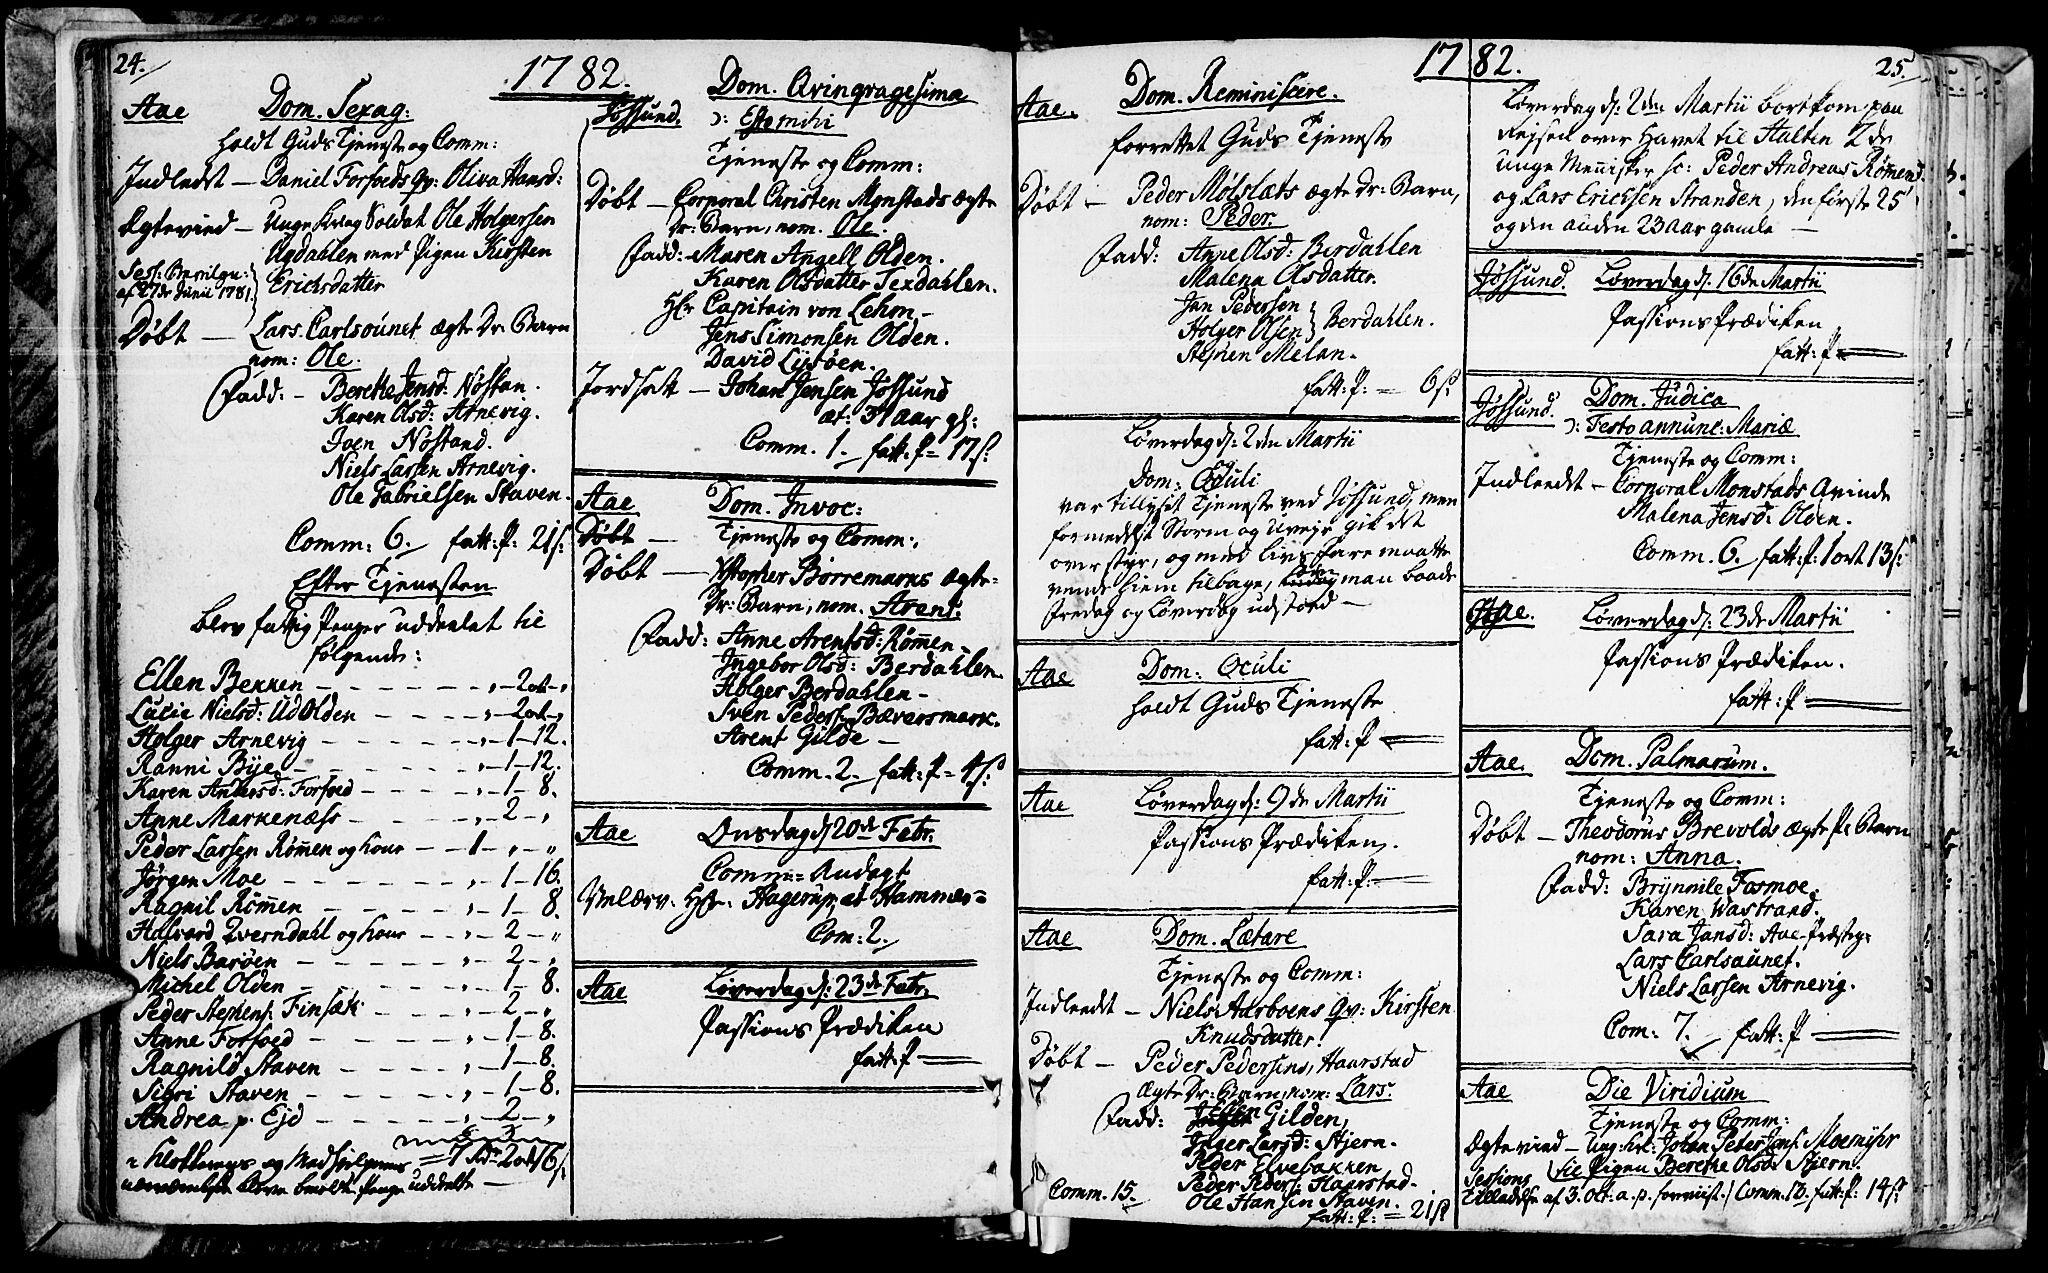 24.
1782.
Aae Dom. Sexag:
holdt Guds Tjeneste og Comm:
Indledt — Daniel Forfoeds Qv: Oliva Hansd:
Ægtevied — Unge Karl Soldat Ole Holgersen
Ugdahlen med Pigen Kirsten
Erichsdatter
Sess: Bevilgn:
af 27de Junii 1781.
Døbt — Lars Carlsøunet ægte Dr: Barn
nom: Ole.
Fadd: — Berethe Jensd: Nøstan.
Karen Olsd: Arnevig.
Joen Nøstand.
Niels Larsen Arnevig.
Ole Gabrielsen Staven.
Comm: 6. fatt: P: 21 s:
Efter Tjenesten
blev fattig Penger uddeelet til
følgende:
Ellen Bekken — „ — 2 ort — „
Lucie Nielsd: Ud Olden — „ — 2 ort — „
Holger Arnevig — „ — 1 — 12.
Ranni Bye — „ — 1 — 12.
Karen Andersd: Forfoed — „ — 1 — 8.
Anne Markenæss — „ — 2 — „
Peder Larsen Rømen og kone — 1 — „ — „
Jørgen Moe — „ — 1 — 16.
Ragnil Rømen — „ — 1 — 8.
Halvord Qverndahl og kone — „ — 2 — „
Niels Barøen — „ — 2 — „
Michel Olden — „ — 1 — 8.
Peder Stephens: Finsæt — „ — 2 — „
Anne Forfoed — „ — 1 — 8.
Ragnild Staven — „ — 1 — 8.
Sigri Staven — „ — 1 — 8.
Andrea p. Ejd — „ — 2 — „
Klokkerens og Medhielperens = 7 Rdr 2 ort 16 s:
Penge uddelte —
Dom. Qvinqvagesima
Jøssund. ɔ: Esto mihi
Tjeneste og Comm:
Døbt — Corporal Christen Monstads ægte
Dr: Barn, nom. Ole.
Fadd: Maren Angell Olden.
Karen Olsdatter Texdahlen.
Hr Capitain von Lehm —
Jens Simonsen Olden.
David Lysøen.
Jordsatt — Johan Jensen Jøssund
at: 37 aar gl:
Comm. 1. fatt: P = 17 s:
Aae Dom. Invoc:
Døbt — Tjeneste og Comm:.
Døbt — Xstopher Børremarks ægte
Dr: Barn, nom. Arent:
Fadd: Anne Arentsd: Rømen —
Ingebor Olsd: Berdahlen.
Holger Berdahlen —
Sven Peders: Bæversmark.
Arent Gilde —
Comm. 2. fatt: P = 4 s:
Aae Onsdag d: 20de Febr.
Comm: Andagt
Hr: Hagerup, at Hammer=
Com: 2.
Aae Løverdag d: 23de Febr.
Passions Prædiken
fatt: P —
1782.
25.
Aae. Dom. Reminiscere.
forrettet Guds Tjeneste
Døbt — Peder Mølslæts ægte Dr: Barn,
nom: Peder.
Fadd: Anne Olsd: Berdahlen
Malena Olsdatter.
Jan Pedersen
Holger Olsen } Berdahlen.
Stephen Melan.
fatt: P: = 6 s:
Løverdag d: 2den Martii
og
Dom: Oculi
var tillyset Tjeneste ved Jøssund, men
formedelst Storm og Uvejr gik det
overstyr, og med livs fare maatte
vende hiem tilbage, som man baade
Fredag og Løverdag udstoed —
Aae Dom: Oculi
holdt Guds Tjeneste
fatt: P —
Aae Løverdag d: 9de Martii
Passions Prædiken.
fatt: P: —
Aae Dom. Lætare
Tjeneste og Comm:
Indleedt — Niels Aarboens Qv: Kirsten
Knudsdatter.
Døbt — Peder Pedersens, Haarstad
ægte Dr: Barn, nom: Lars.
Fadd: Ellen Gilden,
Inger Larsd: Stjern.
Peder Elvebakken
Peder Peders: Haarstad.
Comm. 15. Ole Hansen Staven.
fatt: P: = 21 s:
Løverdag d: 2den Martii bortkom paa
Rejsen over Havet til Halten 2de
unge Mennisker sc: Peder Andreas Rømen
og Lars Erichsen Stranden, den første 25
og den anden 23 aar gamle —
Jøssund. Løverdag d: 16de Martii
Passions Prædiken
fatt: P —
Jøssund. Dom. Judica
ɔ: Festo annunc. Mariæ
Tjeneste og Comm:
Indleedt — Corporal Monstads Qvinde
Malena Jensd: Olden.
Comm. 6. fatt: P: 1 ort 13 s:
Aae. Løverdag d: 23de Martii
Passions Prædiken.
fatt: P —
Aae. Dom. Palmarum.
Tjeneste og Comm:
Døbt — Theodorus Brevolds ægte Pe Barn
nom: Anna.
Fadd: Brynnile Fosmoe.
Karen Wastrand.
Sara Jansd: Aae Præsteg:
Lars Carlsøunet.
Niels Larsen Arnevig.
Com: 7. fatt: P —
Aae Die Viridium
Tjeneste og Comm:
Ægtevied — Ung: krl: Johan Peter Jans: Moemyhr
til Pigen Berethe Olsd: Stjern.
Sessions
Tilladelse af 3. Oct: a. p. forevist. / Comm. 16. fatt: P: 14 s: